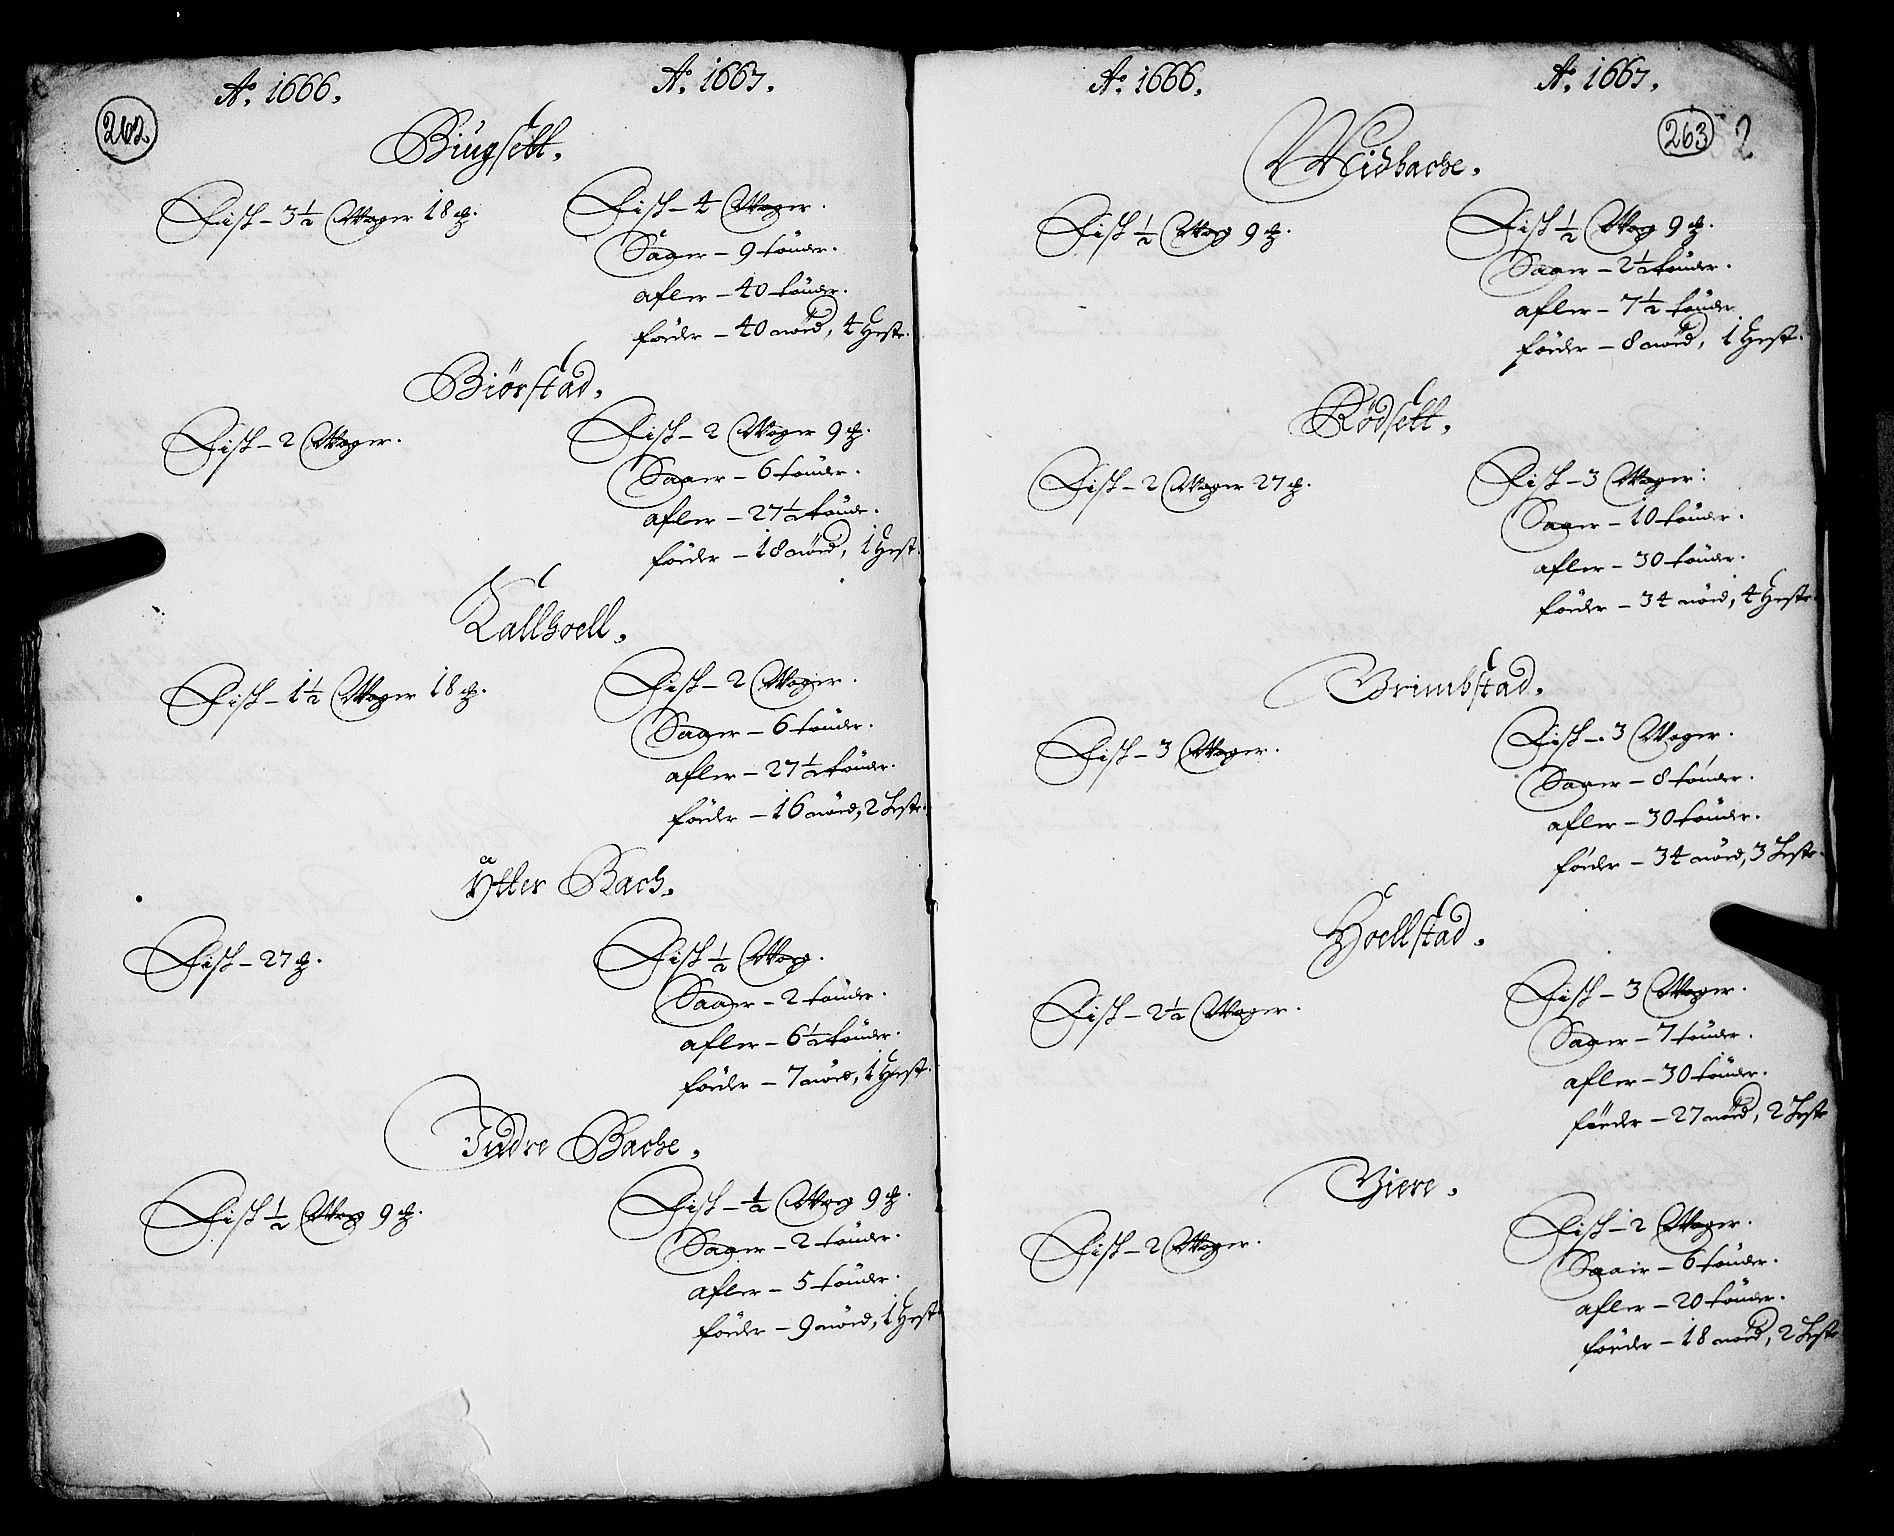 262
Aº. 1666.
Aº. 1667.
Biugsett.
Fisk - 3½ Woger 18 ℔.
Fisk - 4 Woger.
Saaer - 9 tønder.
afler - 40 tønder.
føeder - 40 nød, 4 Heste.
Biørstad.
Fisk - 2 Woger.
Fisk - 2 Woger 9 ℔.
Saaer - 6 tønder.
afler - 27½ tønder.
føeder - 18 nød, 1 Hest.
Kallhoell.
Fisk - 1½ Woger 18 ℔.
Fisk - 2 Woger.
Saaer - 6 tønder.
afler - 27½ tønder.
føeder - 16 nød, 2 Heste.
Ytter Bach.
Fisk - 27 ℔.
Fisk ½ Wog.
Saaer - 2 tønder.
afler - 6½ tønder.
føeder - 7 nød, 1 Hest.
Indre Bache.
Fisk ½ Wog 9 ℔.
Fisk - ½ Wog 9 ℔.
Saaer - 2 tønder.
afler - 5 tønder.
føeder - 9 nød, 1 Hest
Aº. 1666.
Aº. 1667.
263
52
Midbache.
Fisk ½ Wog 9 ℔.
Fisk ½ Wog 9 ℔.
Saaer - 2½ tønder.
afler - 7½ tønder
føeder - 8 nød, 1 Hest.
Rødsett.
Fisk - 2 Woger 27 ℔.
Fisk - 3 Woger:
Saaer - 10 tønder.
afler - 30 tønder.
føeder - 34 nød, 4 Heste.
Grimbstad.
Fisk - 3 Woger.
Fisk - 3 Woger.
Saaer - 8 tønder.
afler - 30 tønder.
føeder - 34 nød, 3 Heste.
Hoellstad.
Fisk - 2½ Woger.
Fisk - 3 Woger.
Saaer - 7 tønder.
afler - 30 tønder.
føeder - 27 nød, 2 Heste
Giere.
Fisk - 2 Woger.
Fisk - 2 Woger.
Saaer - 6 tønder.
afler - 20 tønder.
føeder - 18 nød, 2 Heste